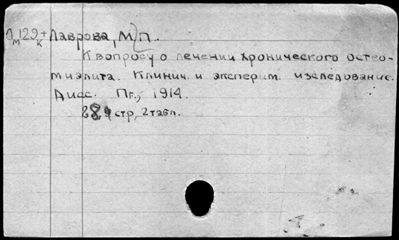 Лаврова, М. П.
К вопросу о лечении хронического остео-
миэлита. Клинич. и эксперим. изследование.
Дисс. Пг., 1914.
стр, 2 табл.